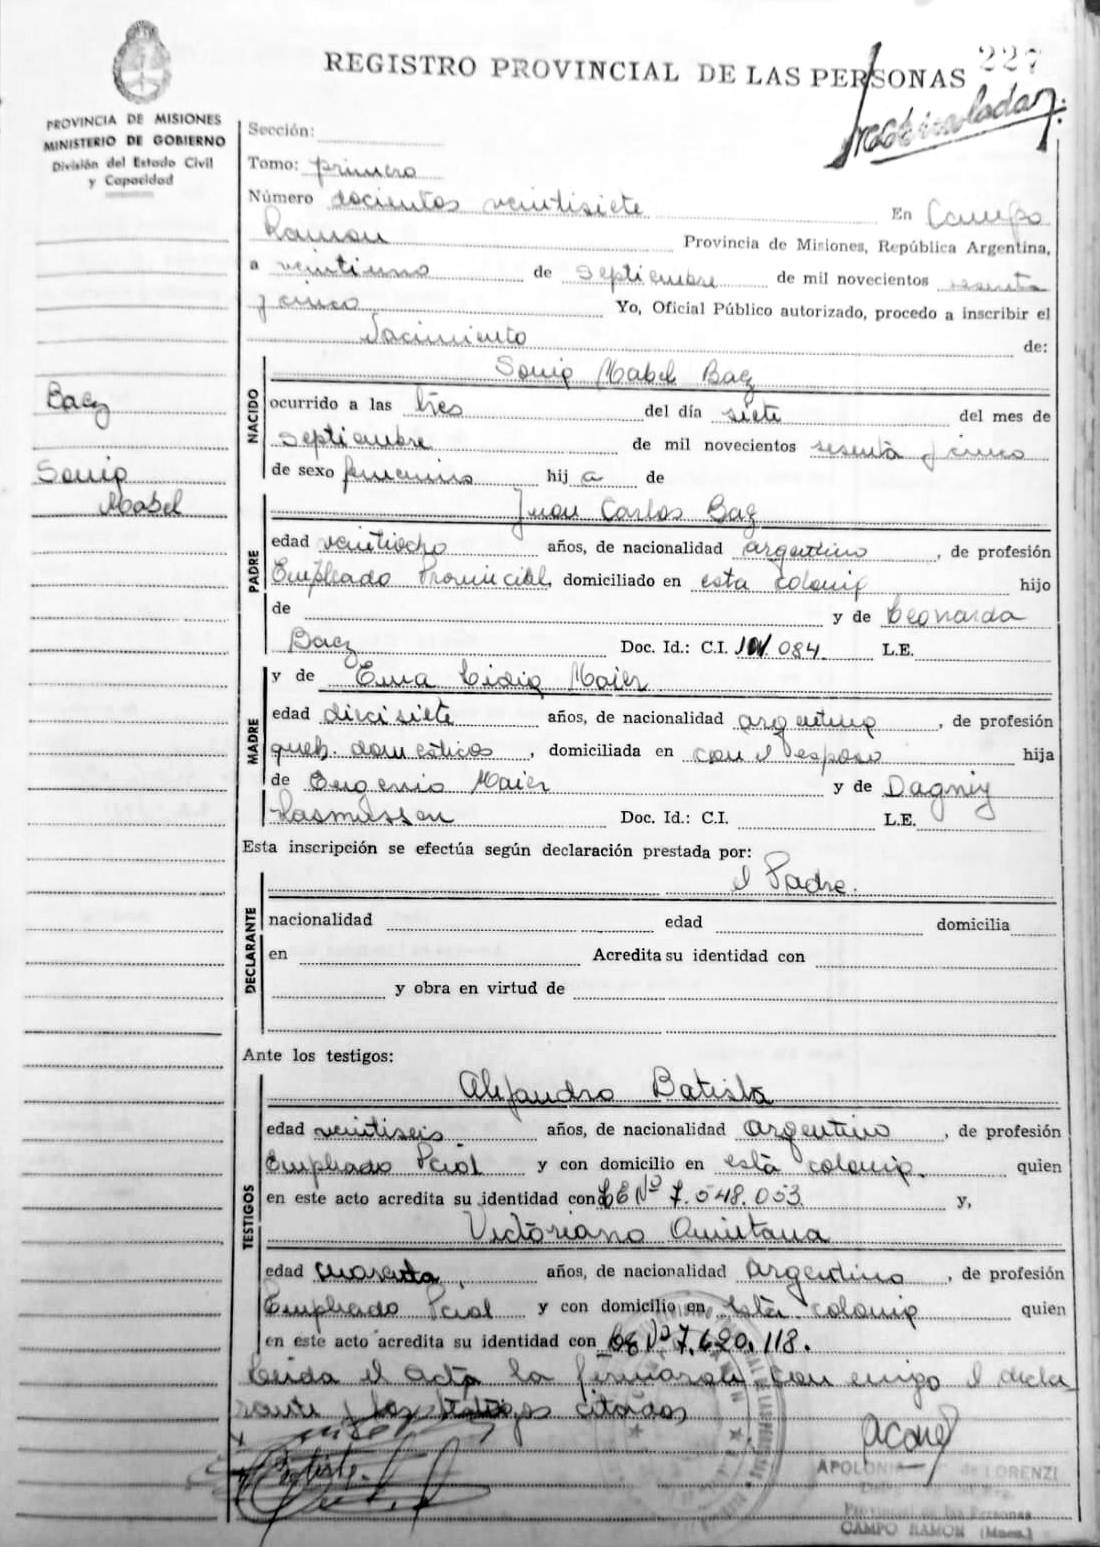 REGISTRO PROVINCIAL DE LAS PERSONAS 227
PROVINCIA DE MISIONES
MINISTERIO DE GOBIERNO
División del Estado Civil
y Capacidad
Sección:
Tomo: primero
Número docientos veintisiete En Campo
Ramon Provincia de Misiones, República Argentina,
a veintiuno de septiembre de mil novecientos sesenta
y cinco Yo, Oficial Público autorizado, procedo a inscribir el
Nacimiento de:
Baez
Sonia
Mabel
NACIDO
Sonia Mabel Baez
ocurrido a las tres del día siete del mes de
septiembre de mil novecientos sesenta y cinco
de sexo femenino hij a de
PADRE
Juan Carlos Baez
edad veintiocho años, de nacionalidad argentino, de profesión
Empleado Provincial, domiciliado en esta colonia hijo
de y de Leonarda
Baez Doc. Id.: C.I. 084. L.E.
MADRE
y de Ema Lidia Maier
edad diecisiete años, de nacionalidad argentina, de profesión
queh. domesticos, domiciliada en con el esposo hija
de Eugenio Maier y de Dagniy
Rasmussen Doc. Id.: C.I. L.E.
Esta inscripción se efectúa según declaración prestada por:
el Padre.
DECLARANTE
nacionalidad edad domicilia
en Acredita su identidad con
y obra en virtud de
Ante los testigos:
TESTIGOS
Alejandro Batista
edad veintiseis años, de nacionalidad argentino, de profesión
Empleado Pcial y con domicilio en esta colonia. quien
en este acto acredita su identidad con LE Nº 7.548.053 y,
Victoriano Quintana
edad cuarenta, años, de nacionalidad Argentino, de profesión
Empleado Pcial y con domicilio en esta colonia quien
en este acto acredita su identidad con LE Nº 7.620.118.
Leida el acta la firmaron con migo el decla-
rante y los testigos citados
Batista.
APOLONIA de LORENZI
Provincial de las Personas
CAMPO RAMON (Mnes.)